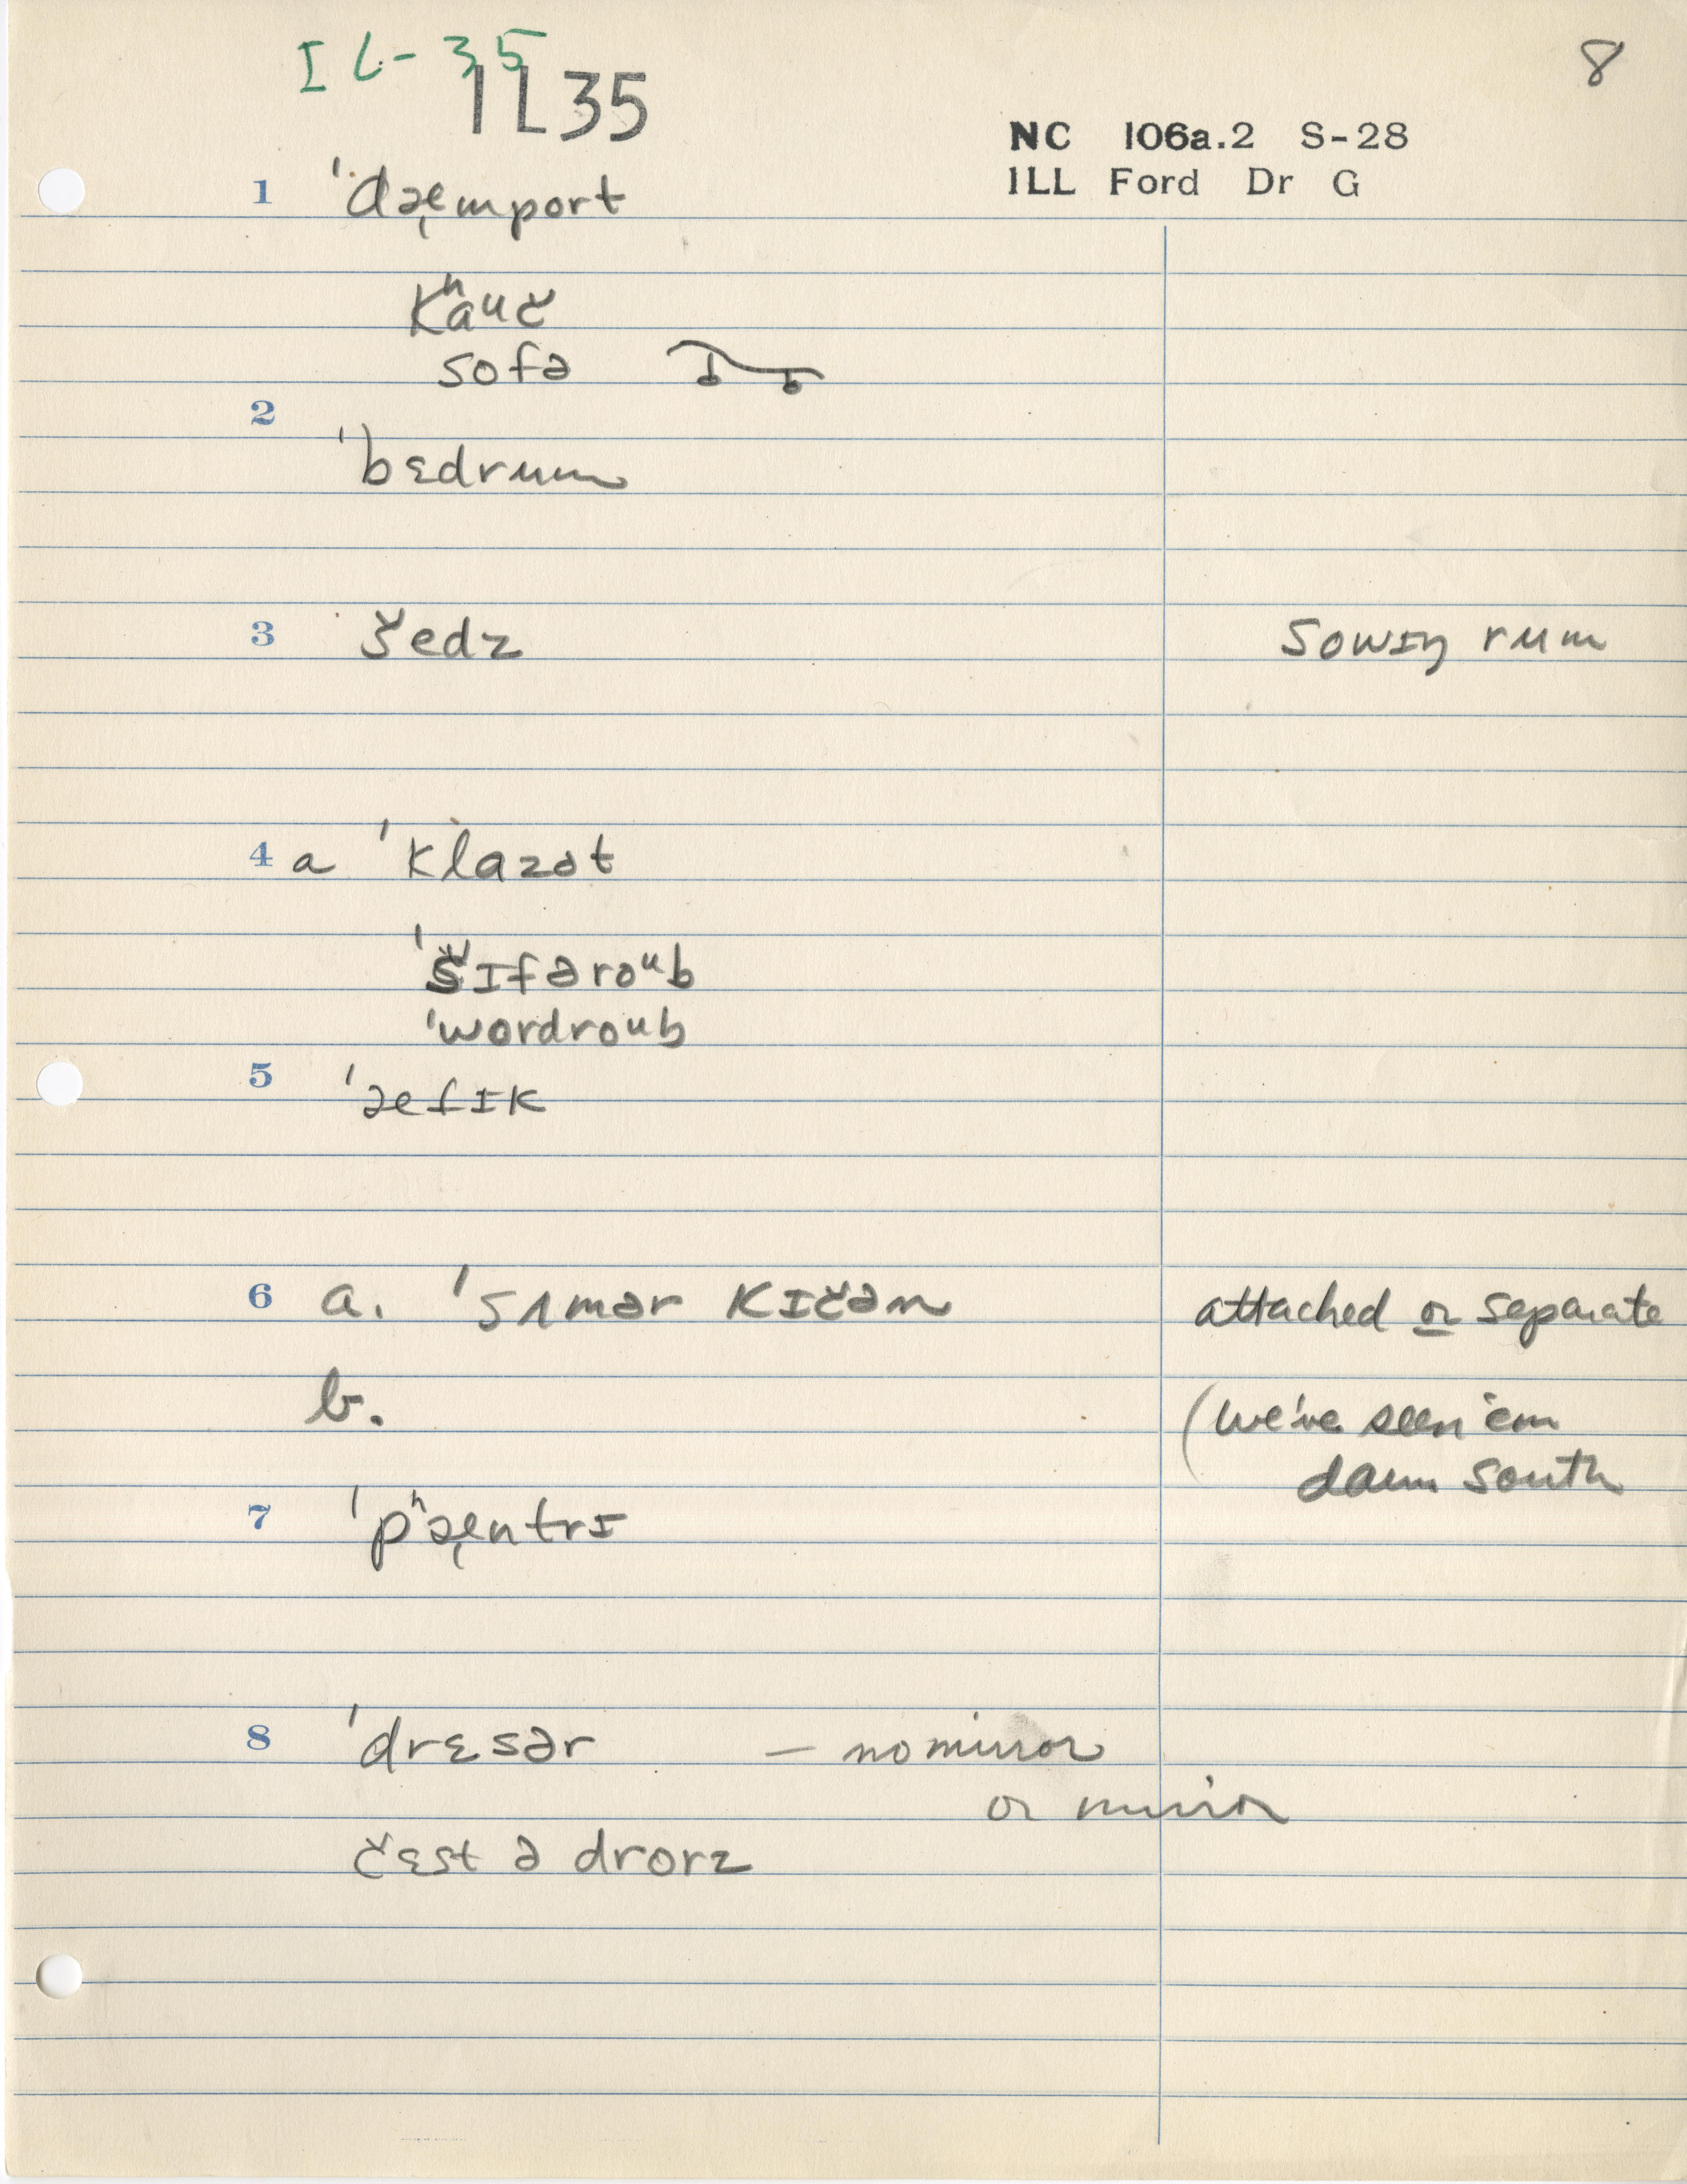 IL-35
1L35
8
NC 106a.2 S-28
ILL Ford Dr G
1 ˈdæ̨mport
kʰauč
sofə
2
ˈbɛdrum
3 šedz
sowɪŋ rum
4 a ˈklazət
ˈšɪfəroᵘb
ˈwordroub
5 ˈæfɪk
6 a. ˈsʌmər kɪčən
attached or separate
b.
(we've seen 'em
down south
7 ˈpʰæ̨ntrɪ
8 ˈdrɛsər — no mirror
or mirror
čɛst ə drorz